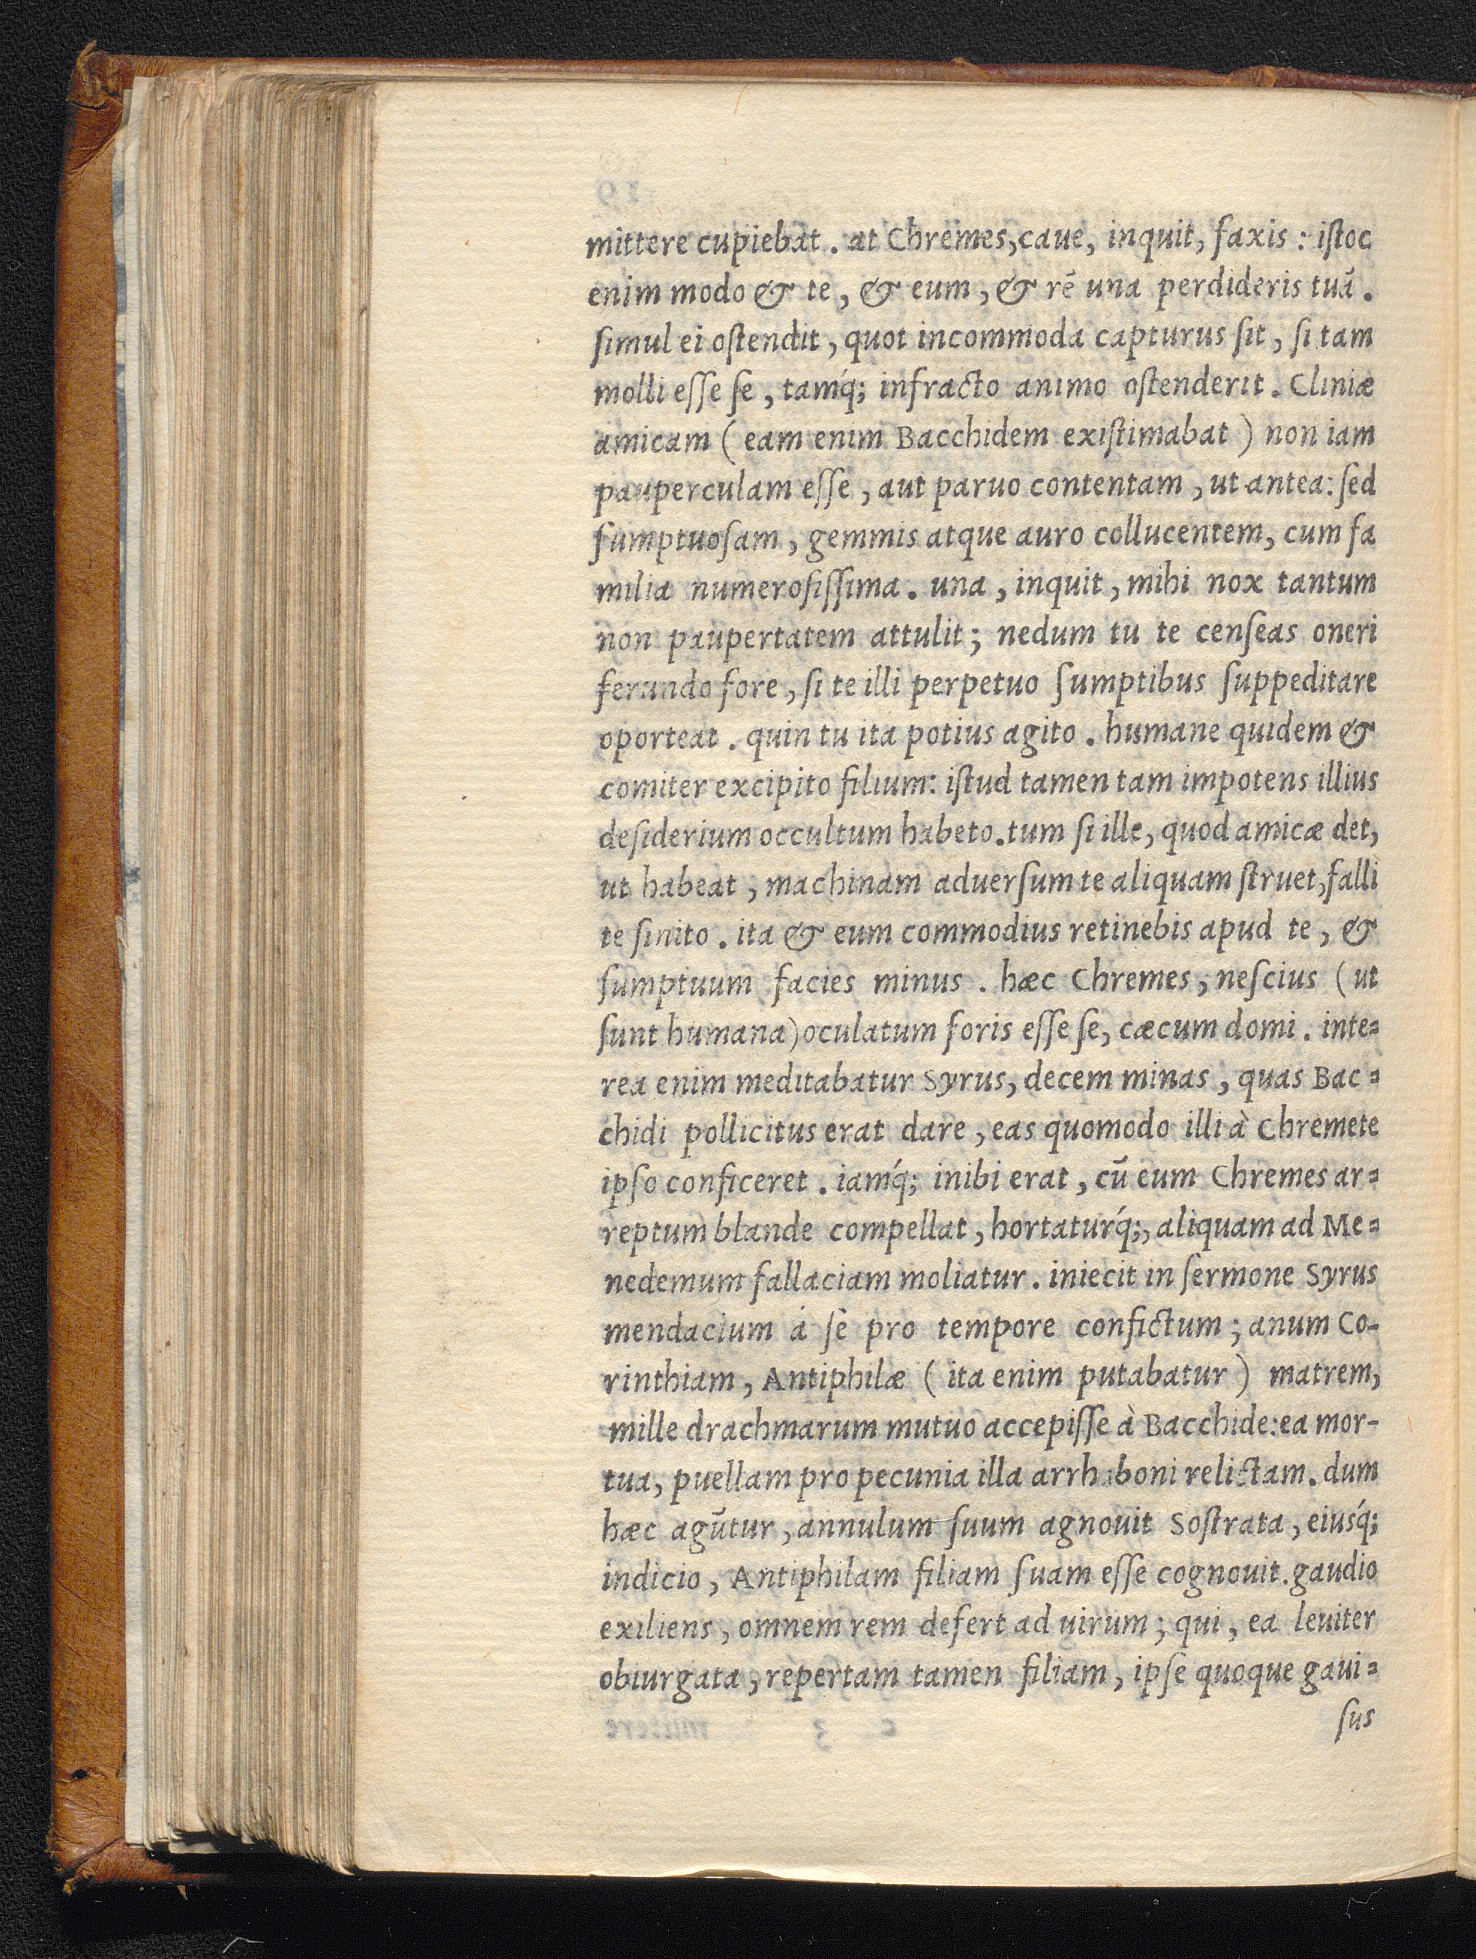 mittere cupiebat. at Chremes, caue, inquit, faxis: iſtoc
enim modo & te, & eum, & rē una perdideris tuā.
ſimul ei oſtendit, quot incommoda capturus ſit, ſi tam
molli eſſe ſe, tamq́; infracto animo oſtenderit. Cliniæ
amicam (eam enim Bacchidem exiſtimabat) non iam
pauperculam eſſe, aut paruo contentam, ut antea: ſed
ſumptuoſam, gemmis atque auro collucentem, cum fa
milia numeroſiſſima. una, inquit, mihi nox tantum
non paupertatem attulit; nedum tu te cenſeas oneri
ferundo fore, ſi te illi perpetuo ſumptibus ſuppeditare
oporteat. quin tu ita potius agito. humane quidem &
comiter excipito filium: iſtud tamen tam impotens illius
deſiderium occultum habeto. tum ſi ille, quod amicæ det,
ut habeat, machinam aduerſum te aliquam ſtruet, falli
te ſinito. ita & eum commodius retinebis apud te, &
ſumptuum facies minus. hæc Chremes, neſcius (ut
ſunt humana) oculatum foris eſſe ſe, cæcum domi. inte=
rea enim meditabatur Syrus, decem minas, quas Bac=
chidi pollicitus erat dare, eas quomodo illi à Chremete
ipſo conficeret. iamq́; inibi erat, cū eum Chremes ar=
reptum blande compellat, hortaturq́;, aliquam ad Me=
nedemum fallaciam moliatur. iniecit in ſermone Syrus
mendacium á ſe pro tempore confictum; anum Co-
rinthiam, Antiphilæ (ita enim putabatur) matrem,
mille drachmarum mutuo accepiſſe à Bacchide: ea mor-
tua, puellam pro pecunia illa arrhaboni relictam. dum
hæc agūtur, annulum ſuum agnouit Soſtrata, eiusq́;
indicio, Antiphilam filiam ſuam eſſe cognouit. gaudio
exiliens, omnem rem defert ad uirum; qui, ea leuiter
obiurgata, repertam tamen filiam, ipſe quoque gaui=
ſus